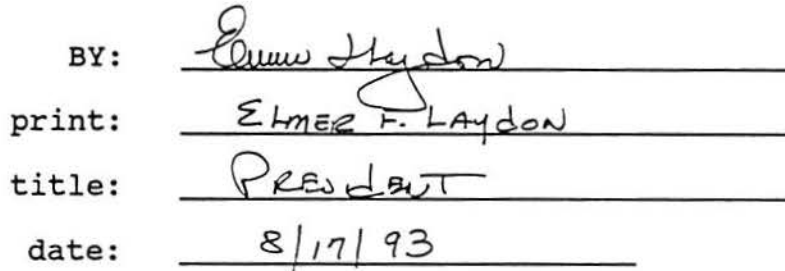 BY: Elmer F Laydon
print: ELMER F. LAYDON
title: PRESIDENT
date: 8/17/93